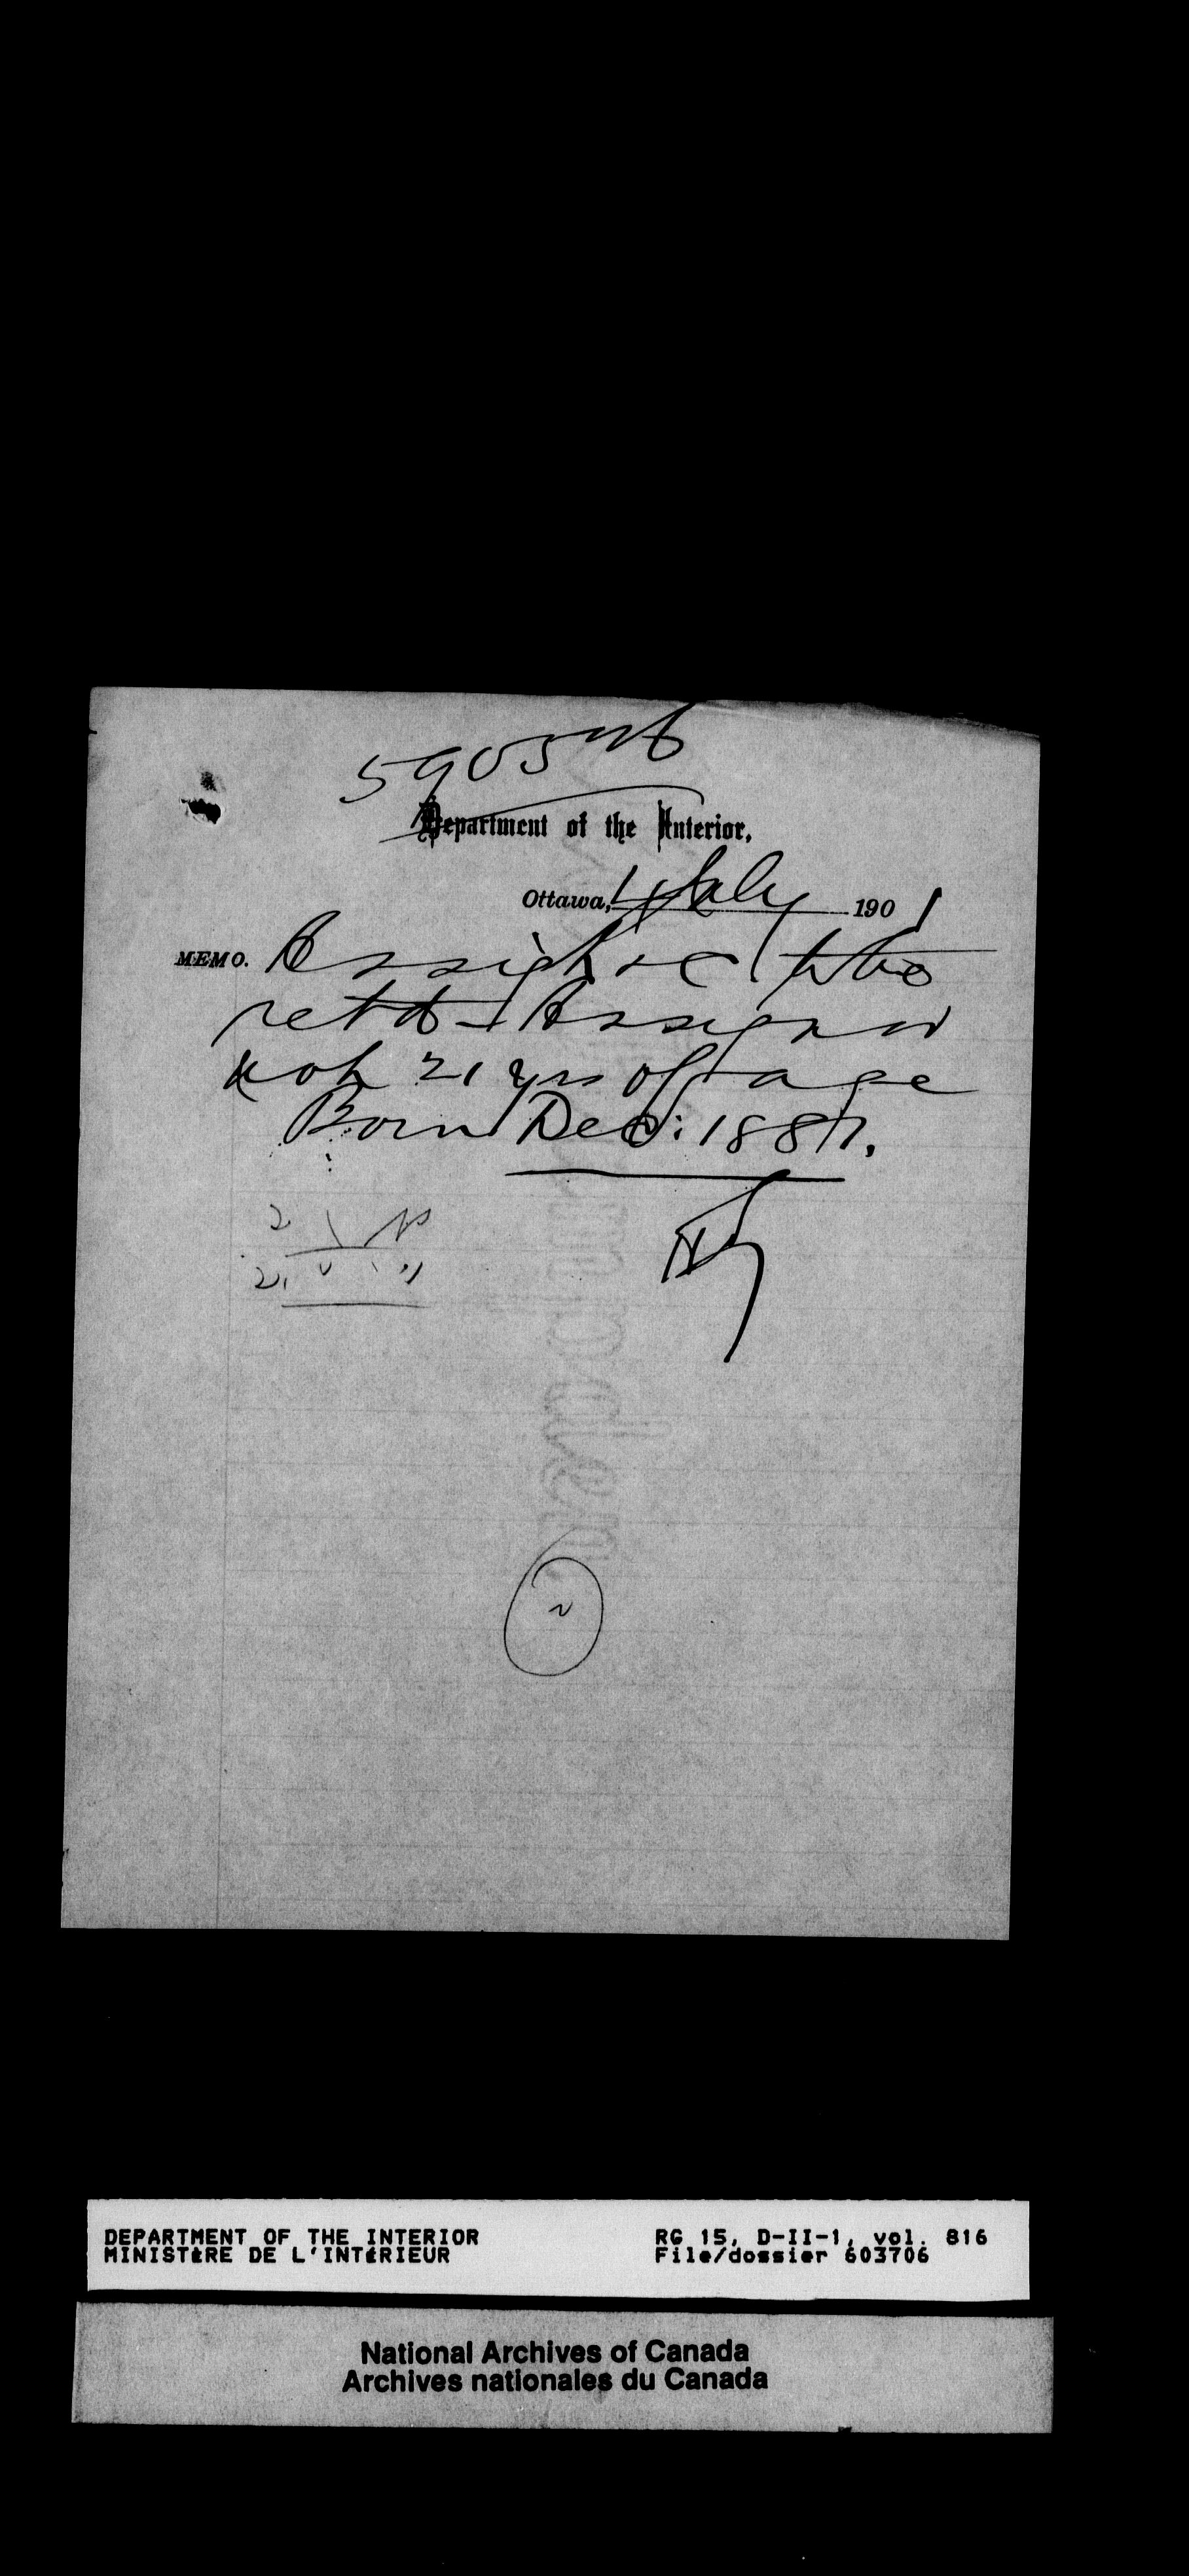 Department of the Interior,
Ottawa, July 1901
MEMO.
retd Assignor
not 21 yrs of age
Born Dec: 1881.
2
DEPARTMENT OF THE INTERIOR
MINISTÈRE DE L'INTÉRIEUR
RG 15, D-II-1, vol. 816
File/dossier 603706
National Archives of Canada
Archives nationales du Canada